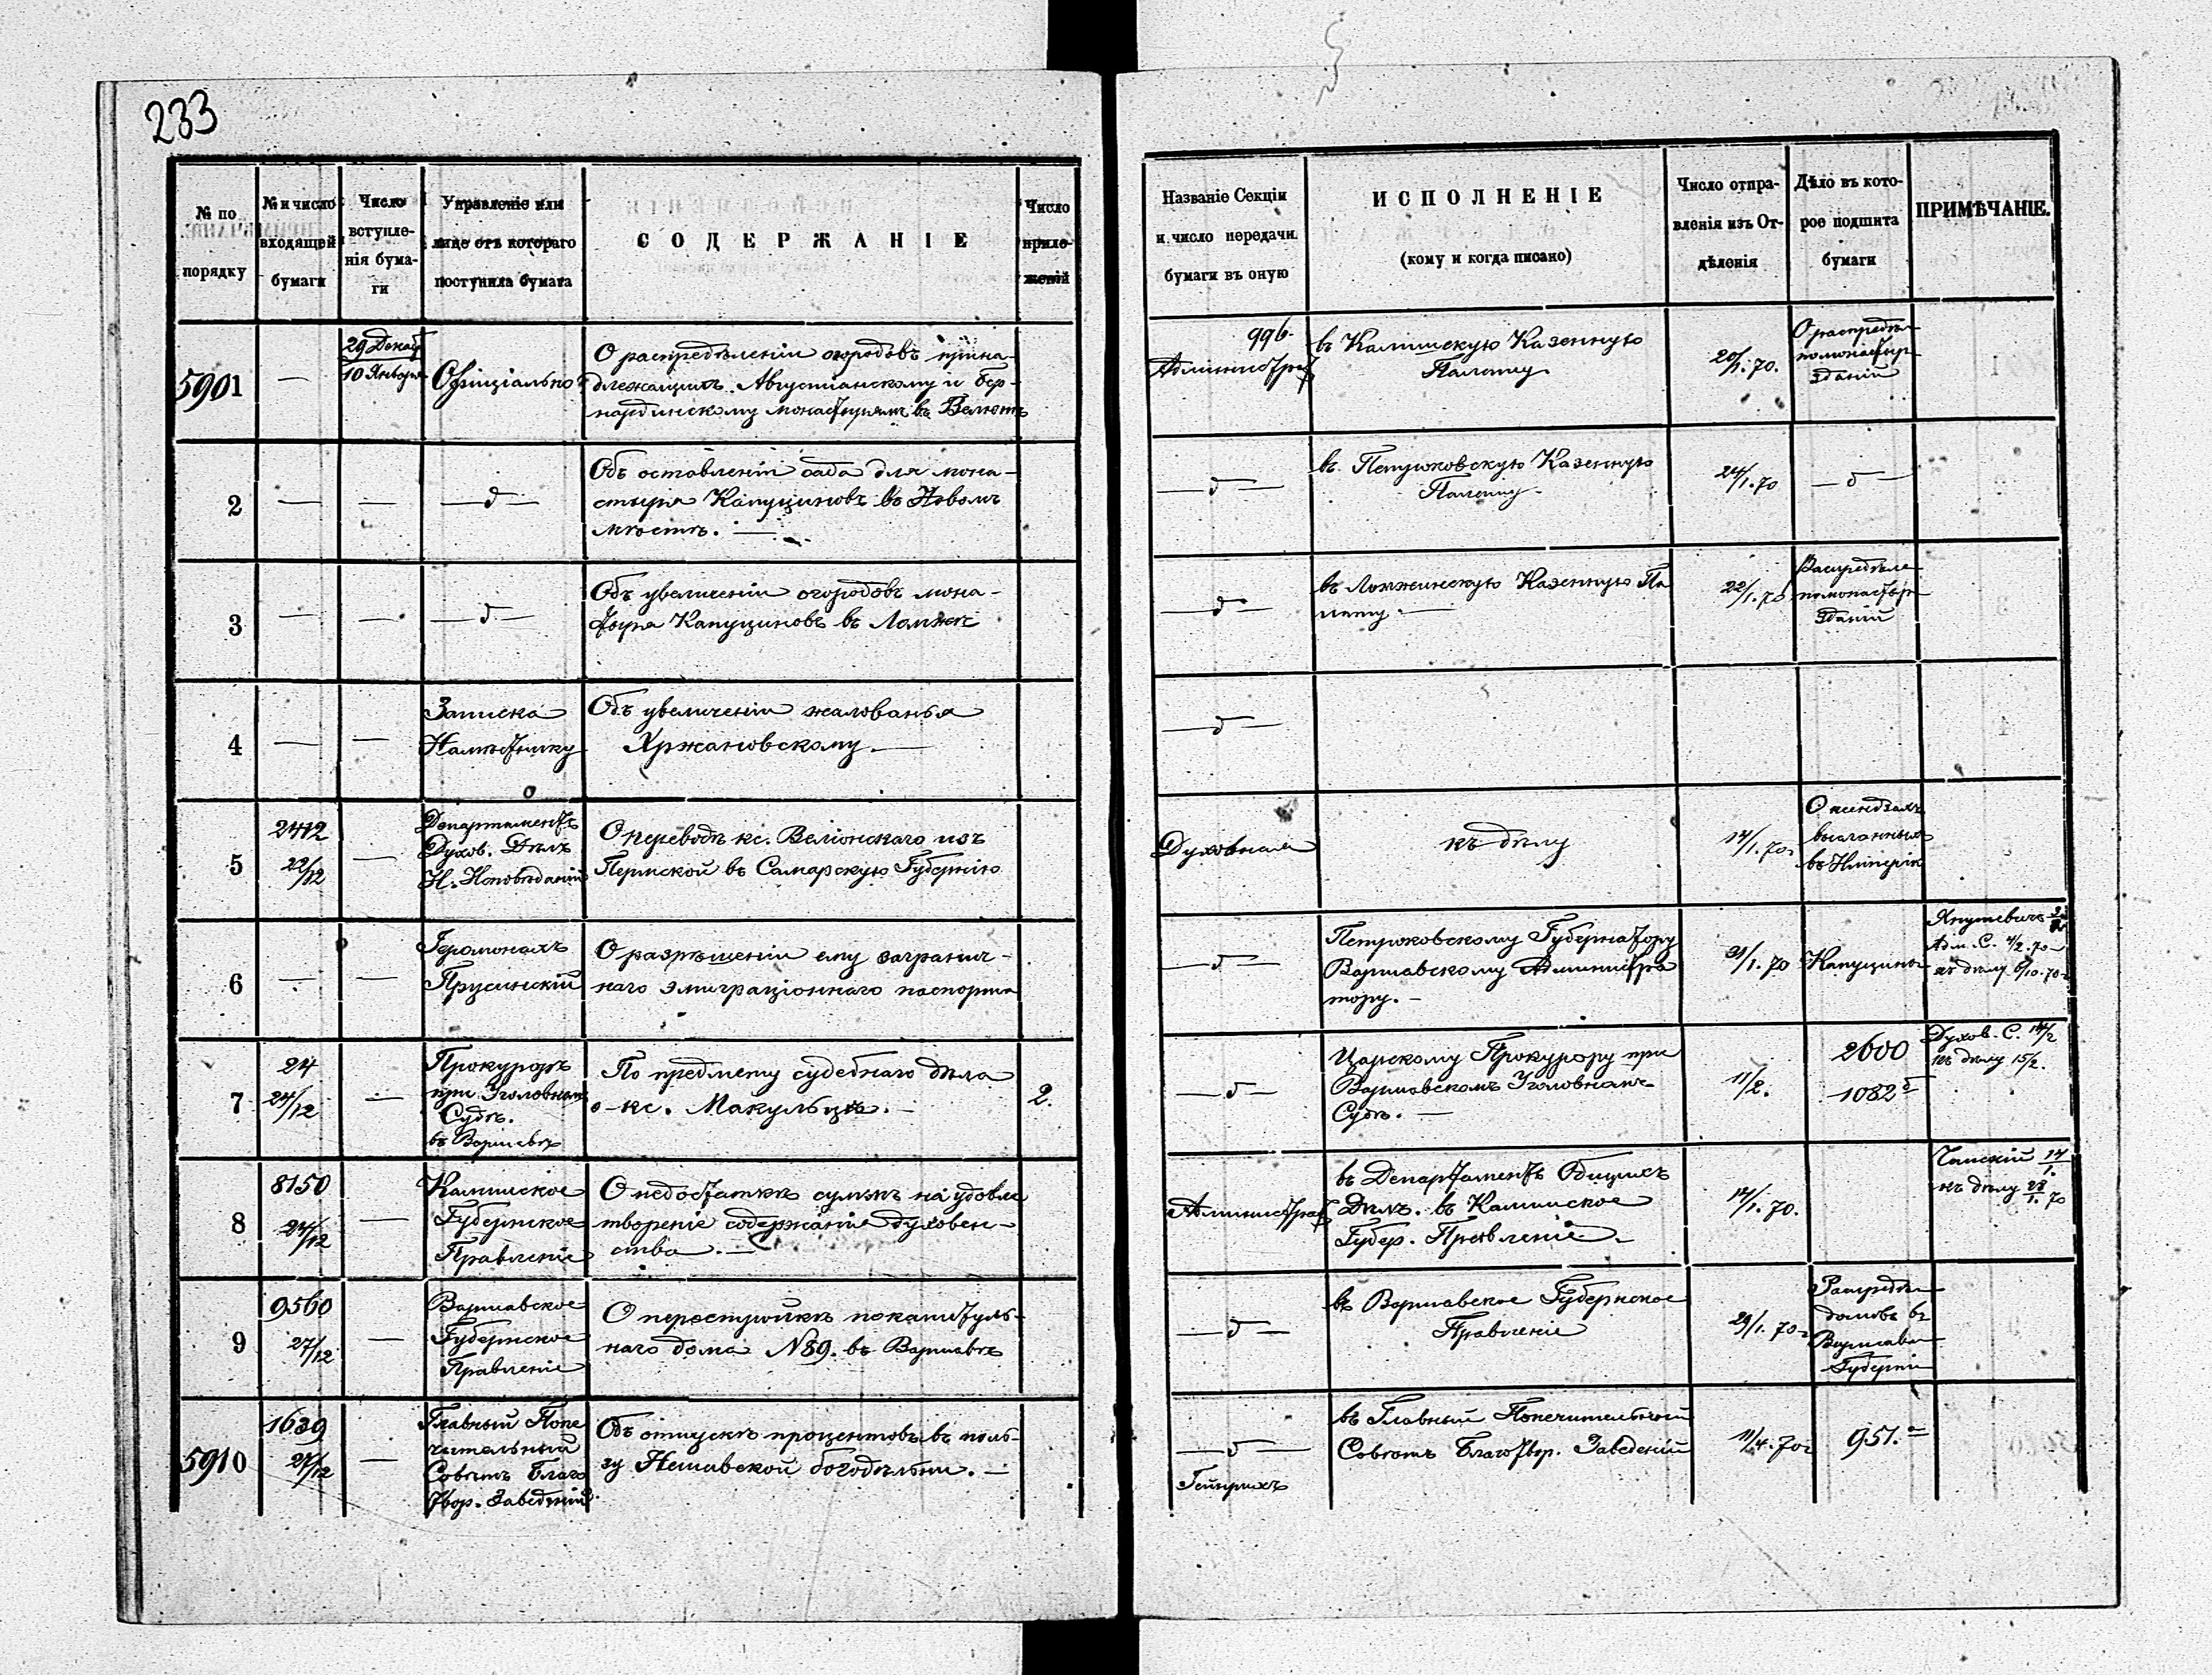 233
№ по
порядку
№ и число
входящей
бумаги
Число
вступле-
нія бума-
ги
Управленіе или
лице отъ котораго
поступила бумага
СОДЕРЖАНІЕ
Число
прило-
женій
Названіе Секціи
и число передачи
бумаги въ оную
ИСПОЛНЕНІЕ
(кому и когда писано)
Число отпра-
вленія изъ От-
дѣленія
Дѣло въ кото-
рое подшита
бумаги
ПРИМѢЧАНІЕ.
5901
—
29 Декаб
10 Января
Офиціально
О распредѣленіи огородовъ прина-
длежащихъ Августіанскому и бер-
нардинскому монастырямъ въ Велюнѣ
996.
Администрат
въ Калишскую Казенную
Палату
20/1.70.
О распредѣл
помонастыр
зданій
2
—
—
—д—
Объ оставленіи сада для мона-
стыря Капуциновъ въ Новомъ
мѣстѣ. —
—д—
въ Петроковскую Казенную
Палату.
24/1.70
—д—
3
—
—
—д—
Объ увеличеніи огородовъ мона-
стыря Капуциновъ въ Ломжѣ
—д—
въ Ломжинскую Казенную Па
лату. —
22/1.70
Распредѣле
помонастыр
зданій
4
—
—
Записка
Намѣстнику
Объ увеличеніи жалованья
Хржановскому. —
—д—
5
2412
22/12
—
Департаментъ
Духов. Дѣлъ
И. Исповѣданій
О переводѣ кс. Веліонскаго изъ
Пермской въ Самарскую Губернію
Духовная
къ дѣлу
14/1.70.
О ксендзахъ
высланныхъ
въ Имперію
6
—
—
Іеромонахъ
Прусинскій
О разрѣшеніи ему загранич-
наго эмиграціоннаго паспорта
—д—
Петроковскому Губернатору
Варшавскому Администра
тору. —
31/1.70
Капуцины
Адм. С. 4/2.70
къ дѣлу 6/10.70
7
24
24/12
—
Прокуроръ
при Уголовномъ
Судѣ.
въ Варшавѣ
По предмету судебнаго дѣла
о кс. Макульцѣ. —
2.
—д—
Царскому Прокурору при
Варшавскомъ Уголовномъ
Судѣ. —
11/2.
2600
1082
Духов. С. 14/2
къ дѣлу 15/2.
8
8150
24/12
—
Калишское
Губернское
Правленіе
О недостаткѣ суммъ на удовле
твореніе содержанія духовен-
ства. —
Администрат
въ Департаментъ Общихъ
Дѣлъ. въ Калишское
Губер. Правленіе. —
14/1.70.
14/1.
къ дѣлу 28/1.70
9
9560
27/12
—
Варшавское
Губернское
Правленіе
О перестройкѣ покапитуль-
наго дома №89. въ Варшавѣ
—д—
въ Варшавское Губернское
Правленіе
29/1.70
Распредѣл
домовъ въ
Варшавск
Губерніи
5910
1639
27/12
—
Главный Попе
чительный
Совѣтъ Благо
твор. Заведеній
Объ отпускѣ процентовъ въ поль-
зу Нешавской богодѣльни. —
—д—
Гейнрихъ
въ Главный Попечительный
Совѣтъ Благотвор. Заведеній
11/4.70
951.